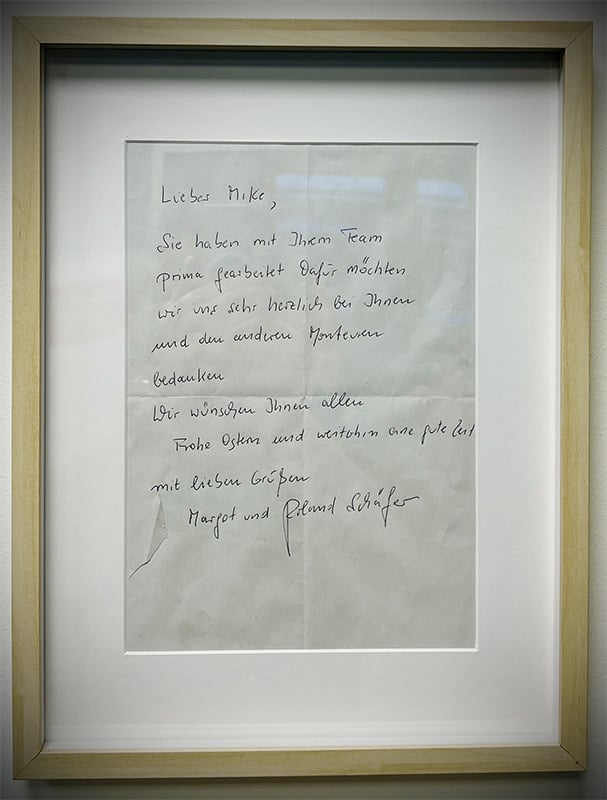 Lieber Mike,
Sie haben mit Ihrem Team
prima gearbeitet Dafür möchten
wir uns sehr herzlich bei Ihnen
und den anderen Monteuren
bedanken
Wir wünschen Ihnen allen
Frohe Ostern und weiterhin eine gute Zeit
mit lieben Grüßen
Margot und Roland Schäfer